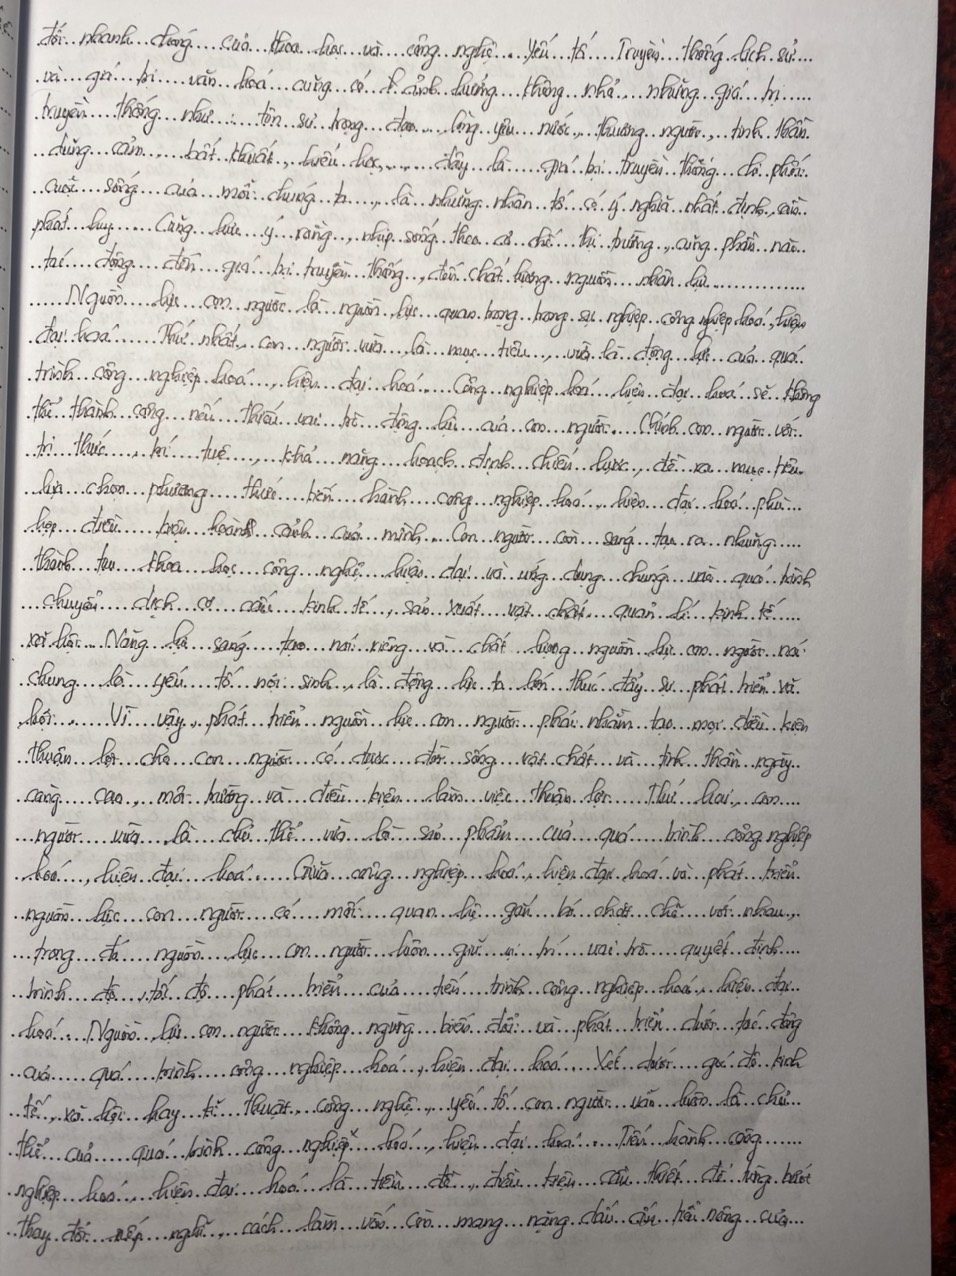 đổi nhanh chóng của khoa học và công nghệ. Yếu tố Truyền thống lịch sử
và giá trị văn hoá cũng có ảnh hưởng không nhỏ, những giá trị
truyền thống như: tôn sư trọng đạo, lòng yêu nước, thương người, tinh thần
dũng cảm, bất khuất, hiếu học, ... đây là giá trị truyền thống chi phối
cuộc sống của mỗi chúng ta, là những nhân tố có ý nghĩa nhất định, cần
phát huy. Cũng lưu ý rằng, nhịp sống theo cơ chế thị trường, cũng phần nào
tác động đến giá trị truyền thống, đến chất lượng nguồn nhân lực.
Nguồn lực con người là nguồn lực quan trọng trong sự nghiệp công nghiệp hoá, hiện
đại hoá. Thứ nhất, con người vừa là mục tiêu, vừa là động lực của quá
trình công nghiệp hoá, hiện đại hoá. Công nghiệp hoá hiện đại hoá sẽ không
thể thành công nếu thiếu vai trò động lực của con người. Chính con người với
tri thức, trí tuệ, khả năng hoạch định chiến lược, đề ra mục tiêu
lựa chọn phương thức tiến hành công nghiệp hoá, hiện đại hoá phù
hợp điều kiện hoàn cảnh của mình. Con người còn sáng tạo ra những
thành tựu khoa học công nghệ hiện đại và ứng dụng chúng vào quá trình
chuyển dịch cơ cấu kinh tế, sản xuất vật chất, quản lí kinh tế
xã hội. Năng lực sáng tạo nói riêng và chất lượng nguồn lực con người nói
chung là yếu tố nội sinh, là động lực to lớn thúc đẩy sự phát triển xã
hội. Vì vậy, phát triển nguồn lực con người phải nhằm tạo mọi điều kiện
thuận lợi cho con người có được đời sống vật chất và tinh thần ngày
càng cao, môi trường và điều kiện làm việc thuận lợi. Thứ hai, con
người vừa là chủ thể vừa là sản phẩm của quá trình công nghiệp
hoá, hiện đại hoá. Giữa công nghiệp hoá, hiện đại hoá và phát triển
nguồn lực con người có mối quan hệ gắn bó chặt chẽ với nhau,
trong đó nguồn lực con người luôn giữ vị trí vai trò quyết định
trình độ, tốc độ phát triển của tiến trình công nghiệp hoá, hiện đại
hoá. Nguồn lực con người không ngừng biến đổi và phát triển dưới tác động
của quá trình công nghiệp hoá, hiện đại hoá. Xét dưới góc độ kinh
tế, xã hội hay kĩ thuật, công nghệ, yếu tố con người vẫn luôn là chủ
thể của quá trình công nghiệp hoá, hiện đại hoá. Tiến hành công
nghiệp hoá, hiện đại hoá là tiền đề, điều kiện cần thiết để từng bước
thay đổi nếp nghĩ, cách làm vốn còn mang nặng dấu ấn tiểu nông của